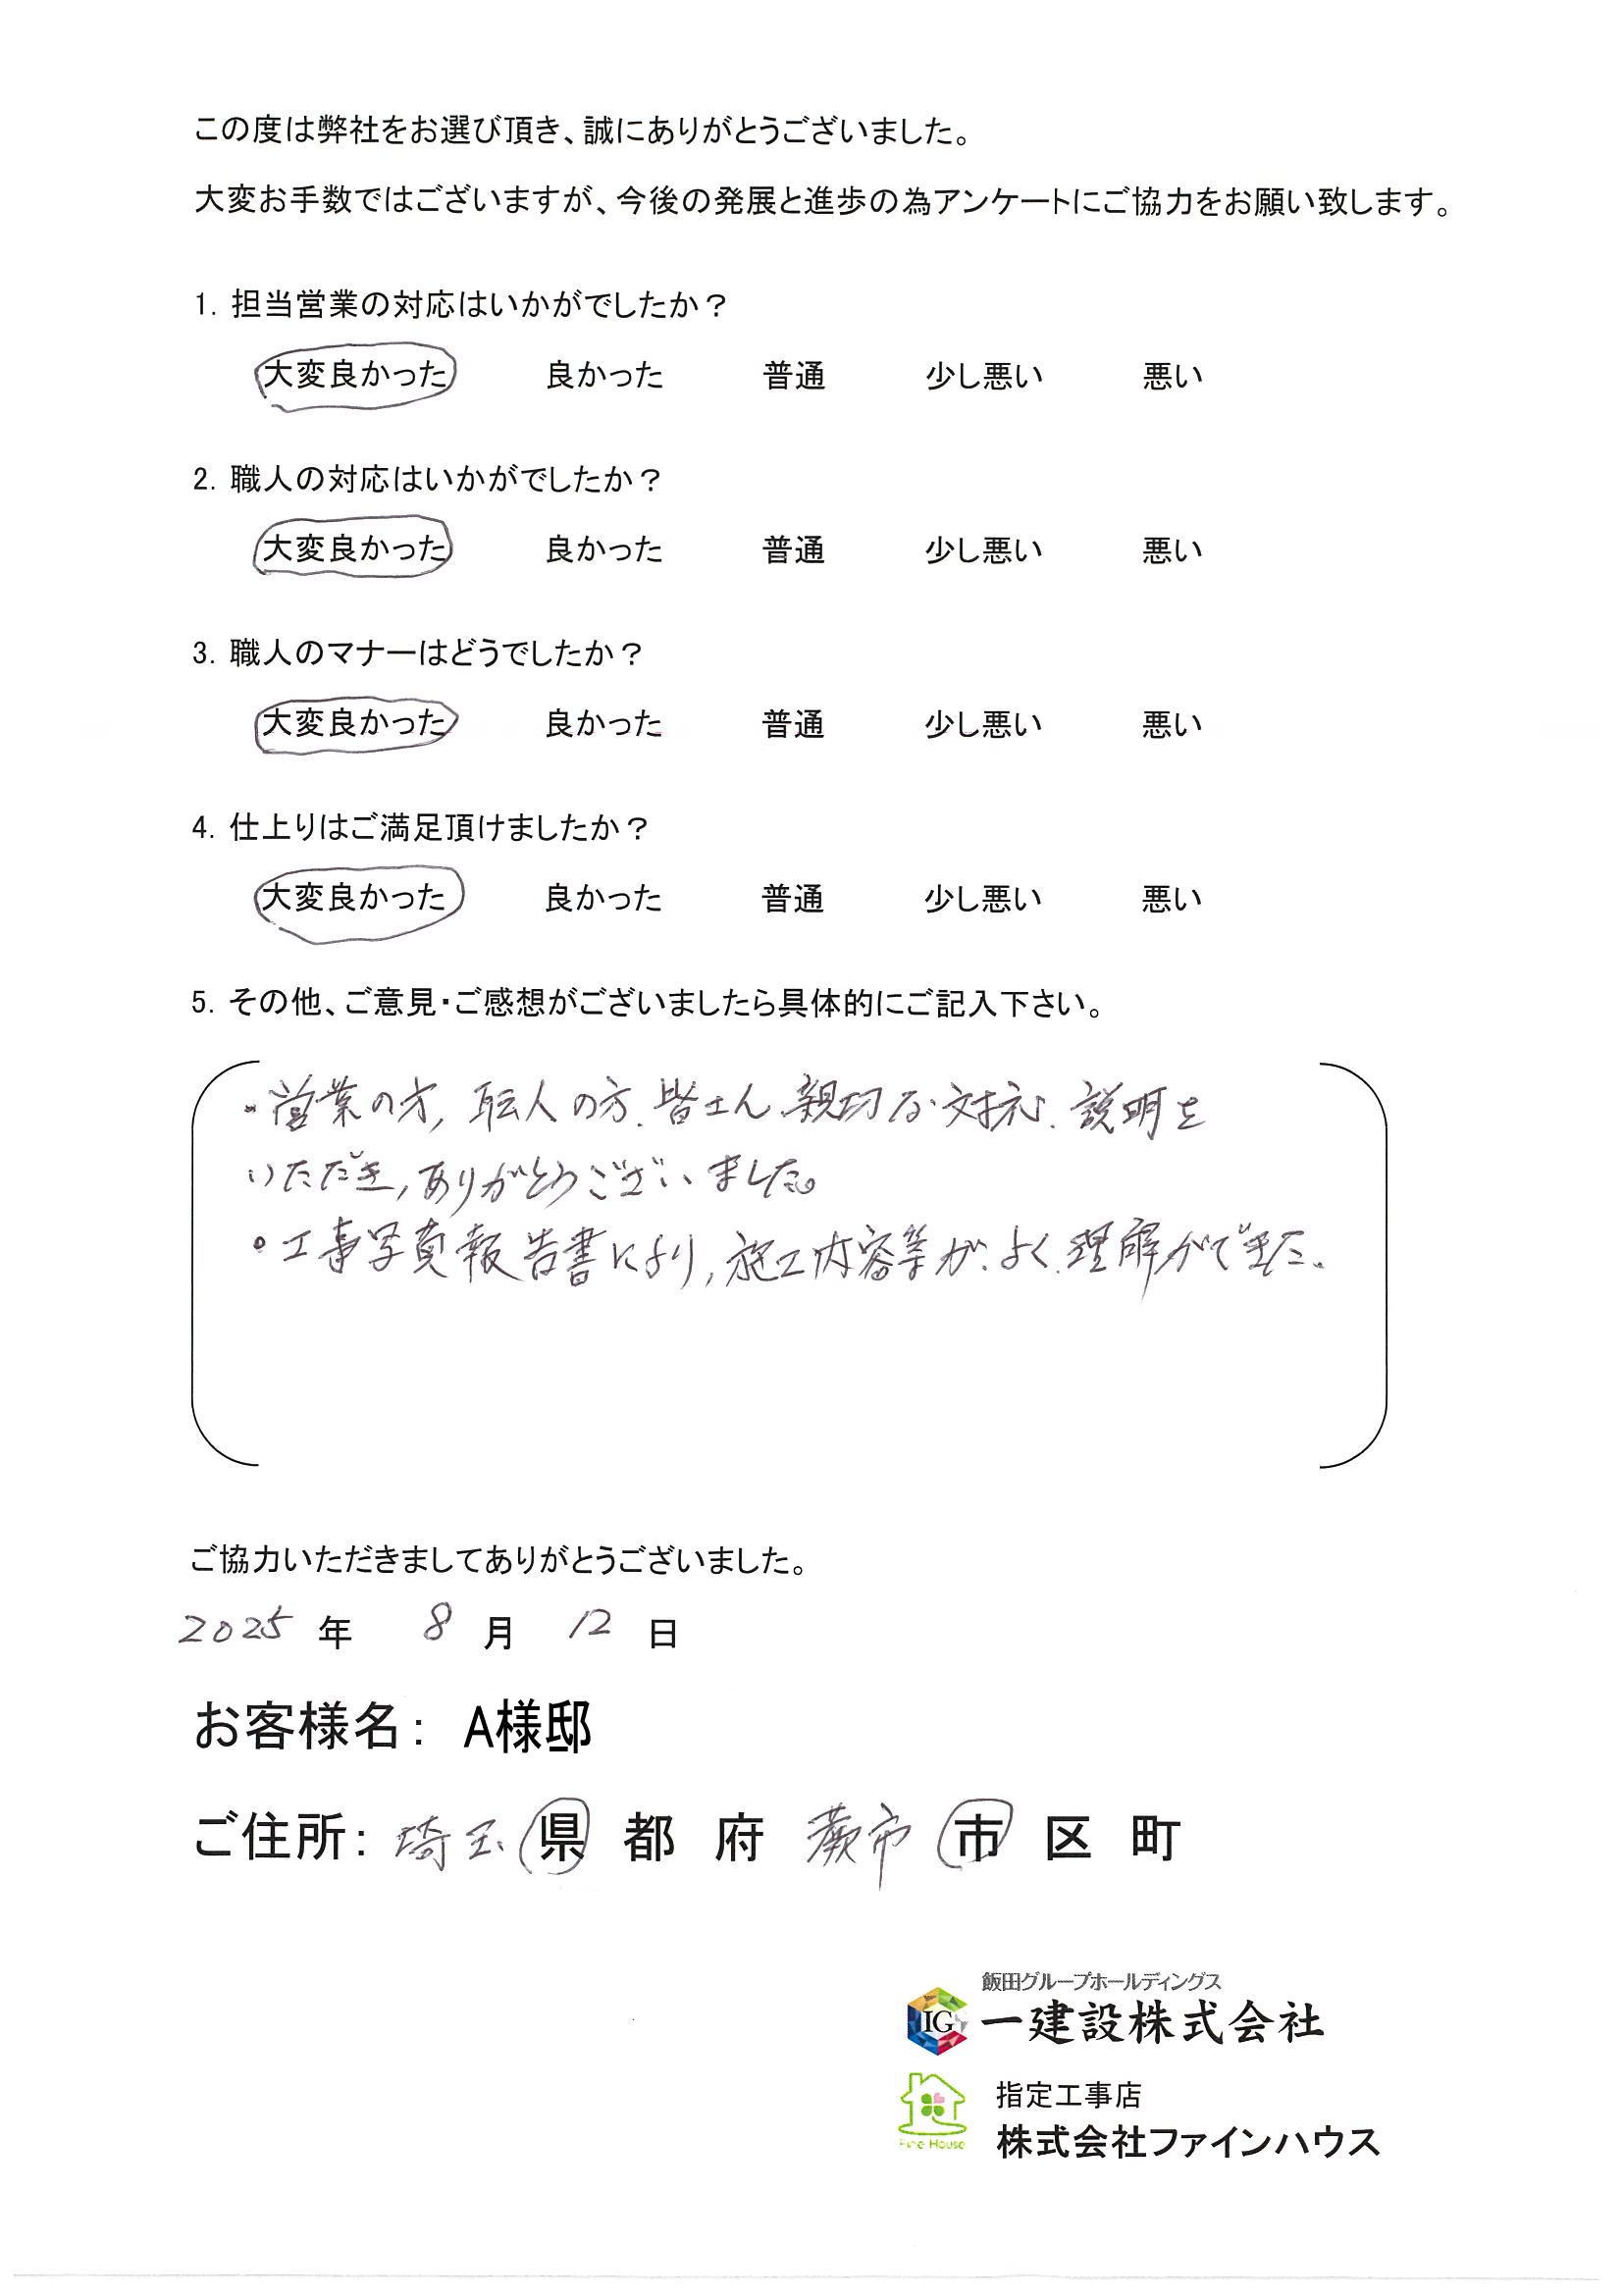 この度は弊社をお選び頂き、誠にありがとうございました。
大変お手数ではございますが、今後の発展と進歩の為アンケートにご協力をお願い致します。
1. 担当営業の対応はいかがでしたか？
大変良かった 良かった 普通 少し悪い 悪い
2. 職人の対応はいかがでしたか？
大変良かった 良かった 普通 少し悪い 悪い
3. 職人のマナーはどうでしたか？
大変良かった 良かった 普通 少し悪い 悪い
4. 仕上りはご満足頂けましたか？
大変良かった 良かった 普通 少し悪い 悪い
5. その他、ご意見・ご感想がございましたら具体的にご記入下さい。
・営業の方, 転人の方、皆さん親切な対応、説明を
いただき, ありがとうございました。
・工事写真報告書により, 施工内容等が、よく理解ができた。
ご協力いただきましてありがとうございました。
2025 年 8 月 12 日
お客様名: A様邸
ご住所: 埼玉 県 都 府 蕨市 市 区 町
飯田グループホールディングス
IG 一建設株式会社
指定工事店
Fine House 株式会社ファインハウス